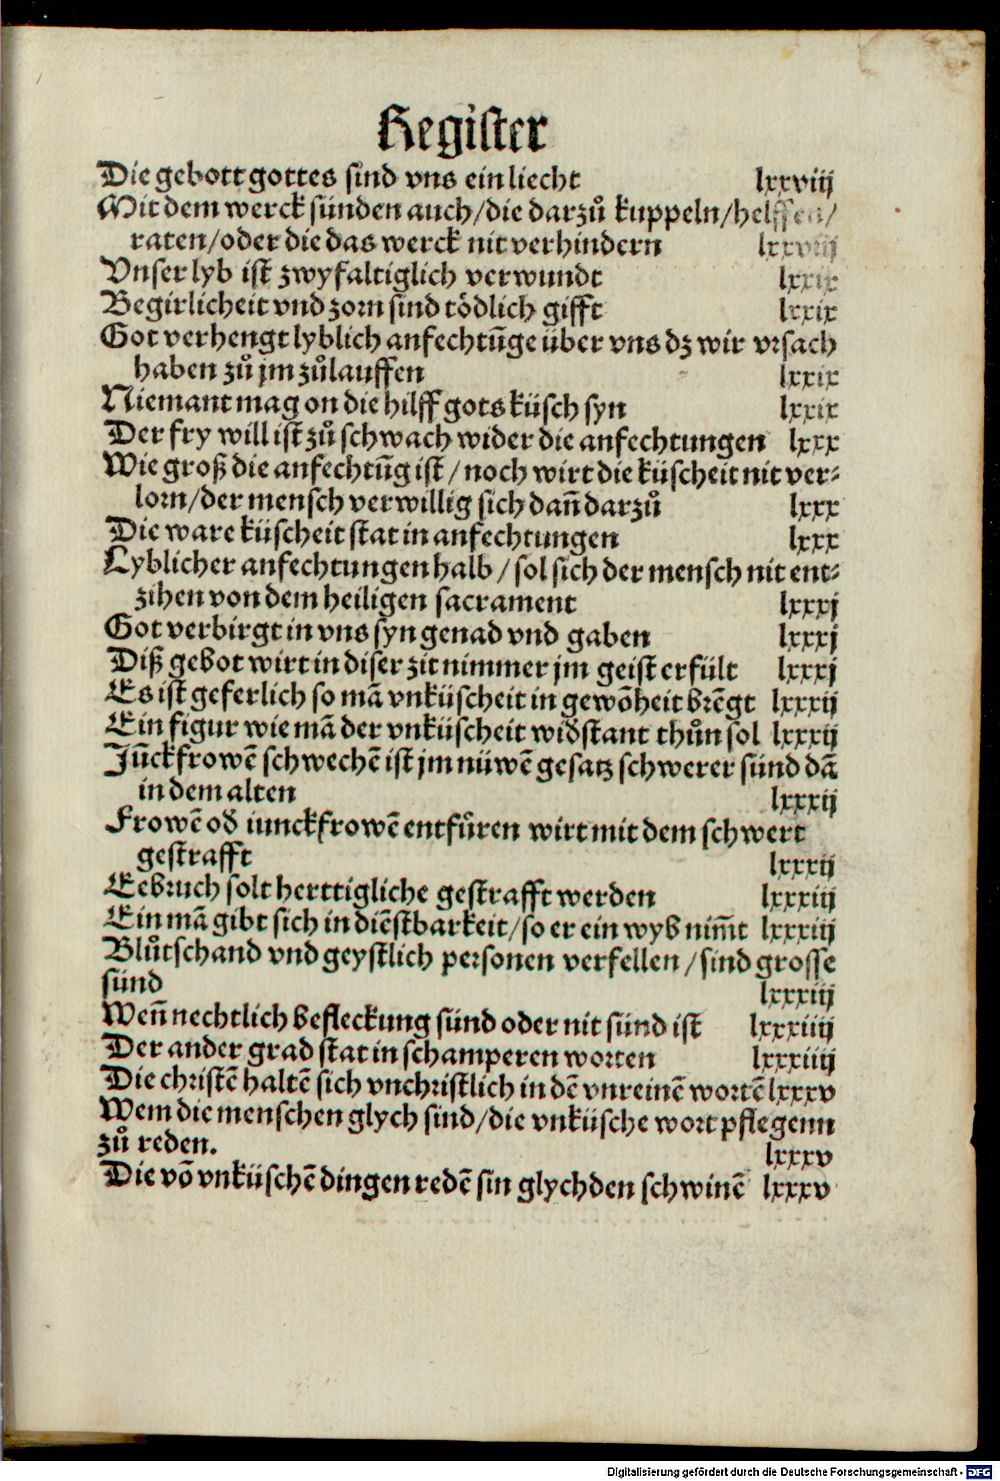 Register
Die gebott gottes sind vns ein liecht lxxviij
Mit dem werck sünden auch/die darzů kuppeln/helffen/
raten/oder die das werck nit verhindern lxxviij
Vnser lyb ist zwyfaltiglich verwundt lxxix
Begirlicheit vnd zorn sind tödlich gifft lxxix
Got verhengt lyblich anfechtūge über vns dz wir vrsach
haben zů jm zůlauffen lxxix
Niemant mag on die hilff gots küsch syn lxxix
Der fry will ist zů schwach wider die anfechtungen lxxx
Wie groß die anfechtūg ist/noch wirt die küscheit nit ver⸗
lorn/der mensch verwillig sich dañ darzů lxxx
Die ware küscheit stat in anfechtungen lxxx
Lyblicher anfechtungen halb/sol sich der mensch nit ent⸗
zihen von dem heiligen sacrament lxxxj
Got verbirgt in vns syn genad vnd gaben lxxxj
Diß gebot wirt in diser zit nimmer jm geist erfült lxxxj
Es ist geferlich so mā vnküscheit in gewōheit brēgt lxxxij
Ein figur wie mā der vnküscheit widstant thůn sol lxxxij
Jūckfrowē schwechē ist jm nüwē gesatz schwerer sünd dā
in dem alten lxxxij
Frowē od iunckfrowē entfůren wirt mit dem schwert
gestrafft lxxxij
Eebruch solt herttigliche gestrafft werden lxxxiij
Ein mā gibt sich in diēstbarkeit/so er ein wyb nim̄t lxxxiij
Blůtschand vnd geystlich personen verfellen/sind grosse
sünd lxxxiij
Weñ nechtlich befleckung sünd oder nit sünd ist lxxxiiij
Der ander grad stat in schamperen worten lxxxiiij
Die christē haltē sich vnchristlich in dē vnreinē wortē lxxxv
Wem die menschen glych sind/die vnküsche wort pflegenn
zů reden. lxxxv
Die vō vnküschē dingen redē sin glych den schwinē lxxxv
Digitalisierung gefördert durch die Deutsche Forschungsgemeinschaft - DFG